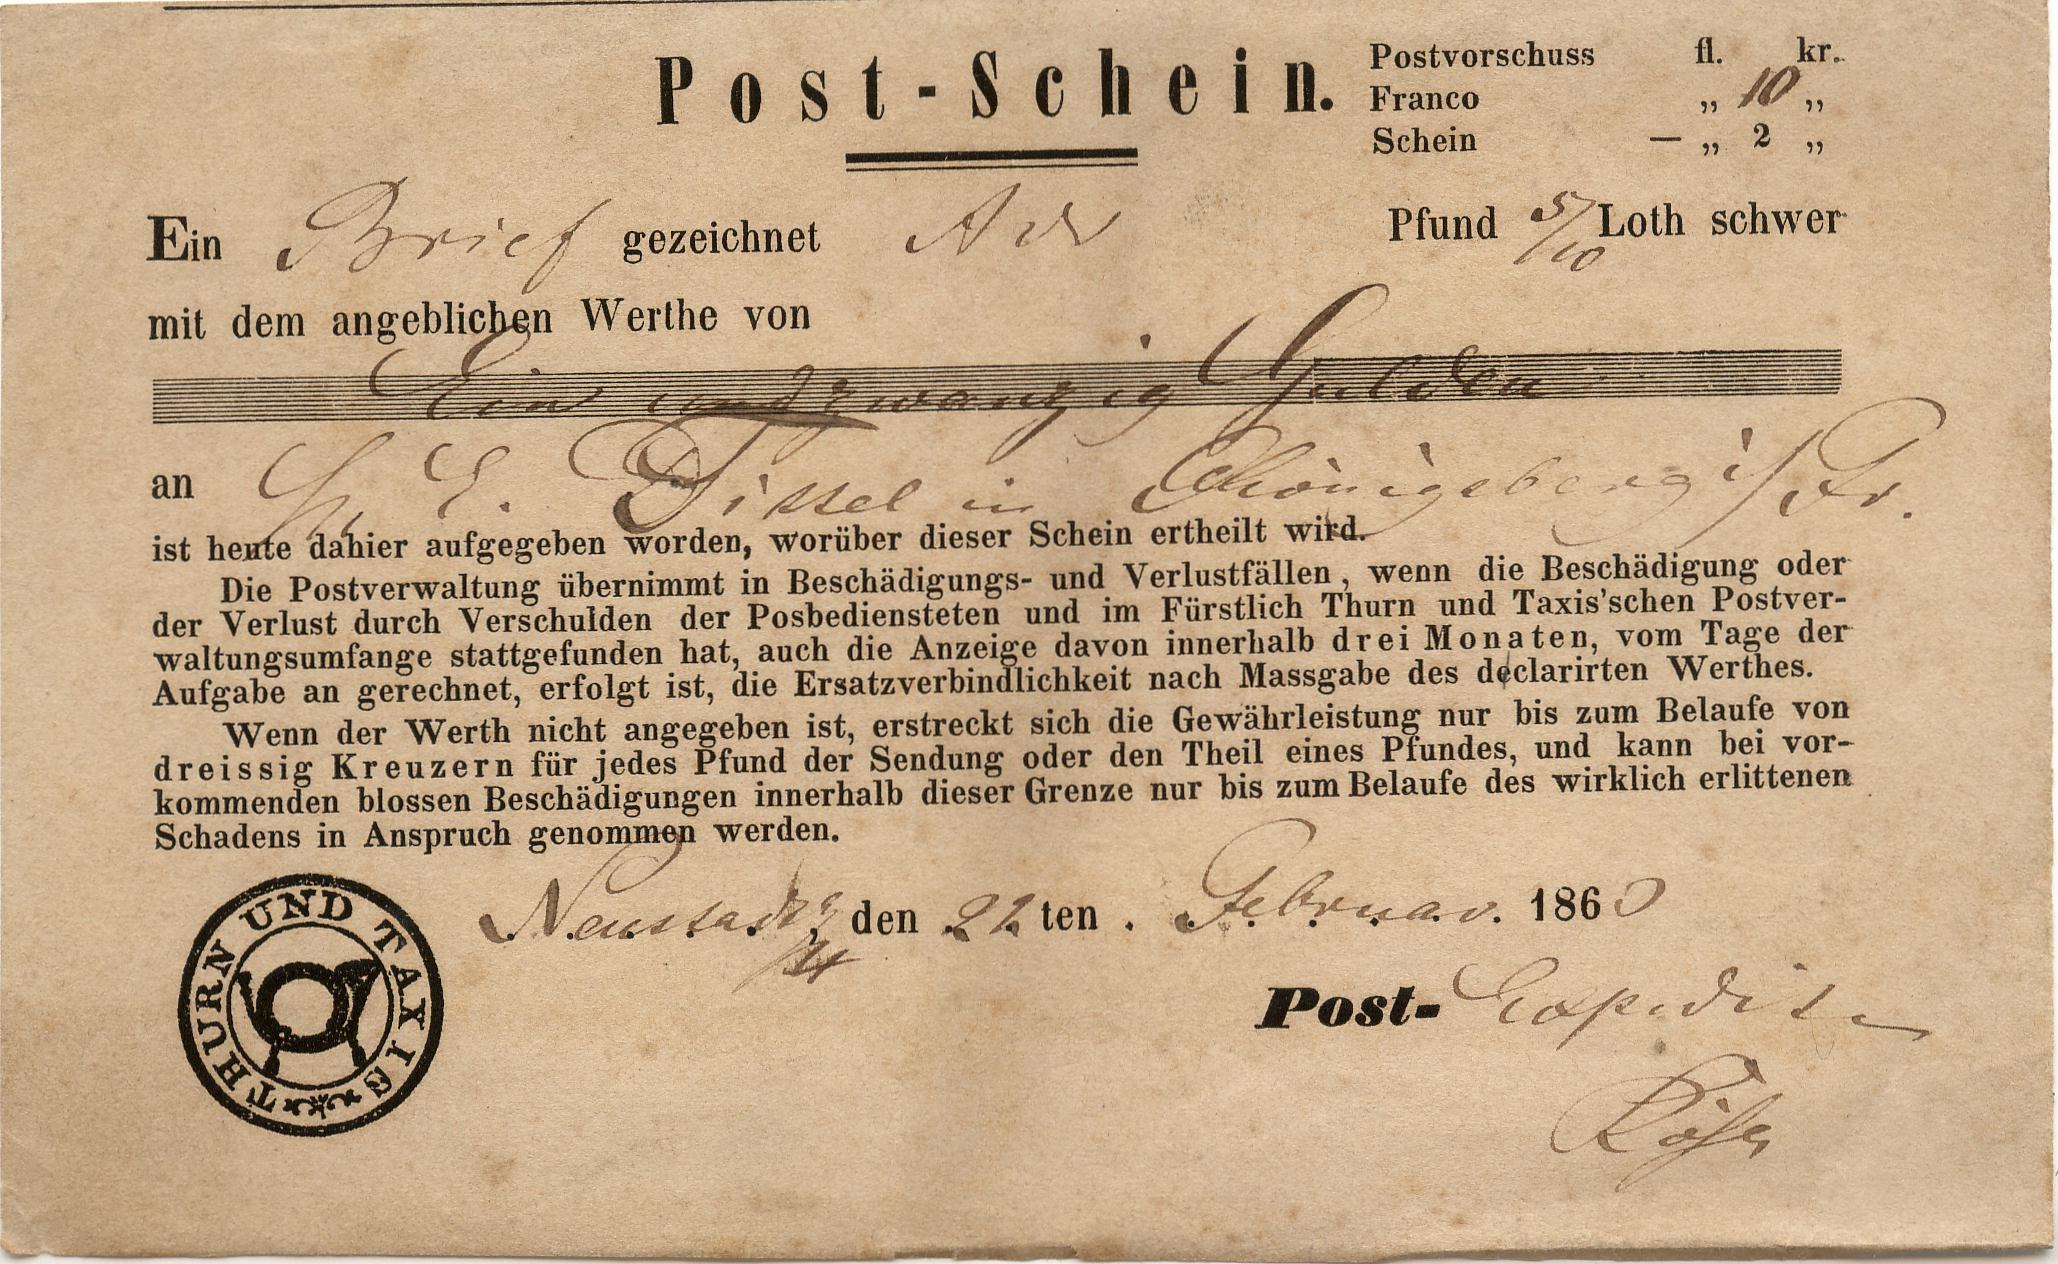 Post-Schein.
Postvorschuss fl. kr.
Franco „ 10 „
Schein — „ 2 „
Ein Brief gezeichnet Adr Pfund 5/10 Loth schwer
mit dem angeblichen Werthe von
Ein und zwanzig Gulden
an E. Dissel in Königsberg i/ Fr.
ist heute dahier aufgegeben worden, worüber dieser Schein ertheilt wird.
Die Postverwaltung übernimmt in Beschädigungs- und Verlustfällen, wenn die Beschädigung oder
der Verlust durch Verschulden der Posbediensteten und im Fürstlich Thurn und Taxis'schen Postver-
waltungsumfange stattgefunden hat, auch die Anzeige davon innerhalb drei Monaten, vom Tage der
Aufgabe an gerechnet, erfolgt ist, die Ersatzverbindlichkeit nach Massgabe des declarirten Werthes.
Wenn der Werth nicht angegeben ist, erstreckt sich die Gewährleistung nur bis zum Belaufe von
dreissig Kreuzern für jedes Pfund der Sendung oder den Theil eines Pfundes, und kann bei vor-
kommenden blossen Beschädigungen innerhalb dieser Grenze nur bis zum Belaufe des wirklich erlittenen
Schadens in Anspruch genommen werden.
Neustadt den 22 ten Februar. 1860
THURN UND TAXIS
Post- Expedit